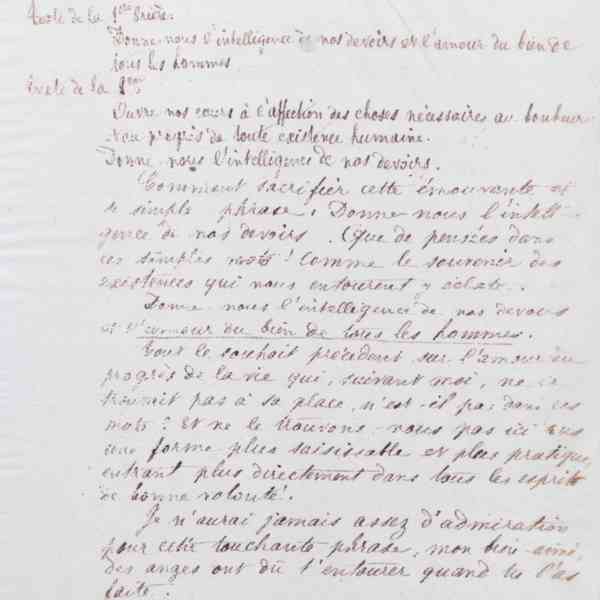 Texte de la 1ère Prière.
Donne-nous l'intelligence de nos devoirs et l'amour du bien de
tous les hommes
Texte de la
Ouvre nos cœurs à l'affection des choses nécessaires au bonheur
au progrès de toute existence humaine.
Donne-nous l'intelligence de nos devoirs.
Comment sacrifier cette émouvante et
simple phrase, Donne nous l'intelli-
gence de nos devoirs. Que de pensées dans
ces simples mots! Comme le souvenir des
existences qui nous entourent y éclate.
Donne nous l'intelligence de nos devoirs
et l'amour du bien de tous les hommes.
Tout le souhait précédent sur l'amour du
progrès de la vie qui, suivant moi, ne se
trouvait pas à sa place, n'est-il pas dans ces
mots? et ne le trouvons-nous pas ici sous
une forme plus saisissable et plus pratique,
entrant plus directement dans tous les esprits
de bonne volonté!.
Je n'aurai jamais assez d'admiration
pour cette touchante phrase, mon bien aimé,
des anges ont dû t'entourer quand tu l'as
faite.